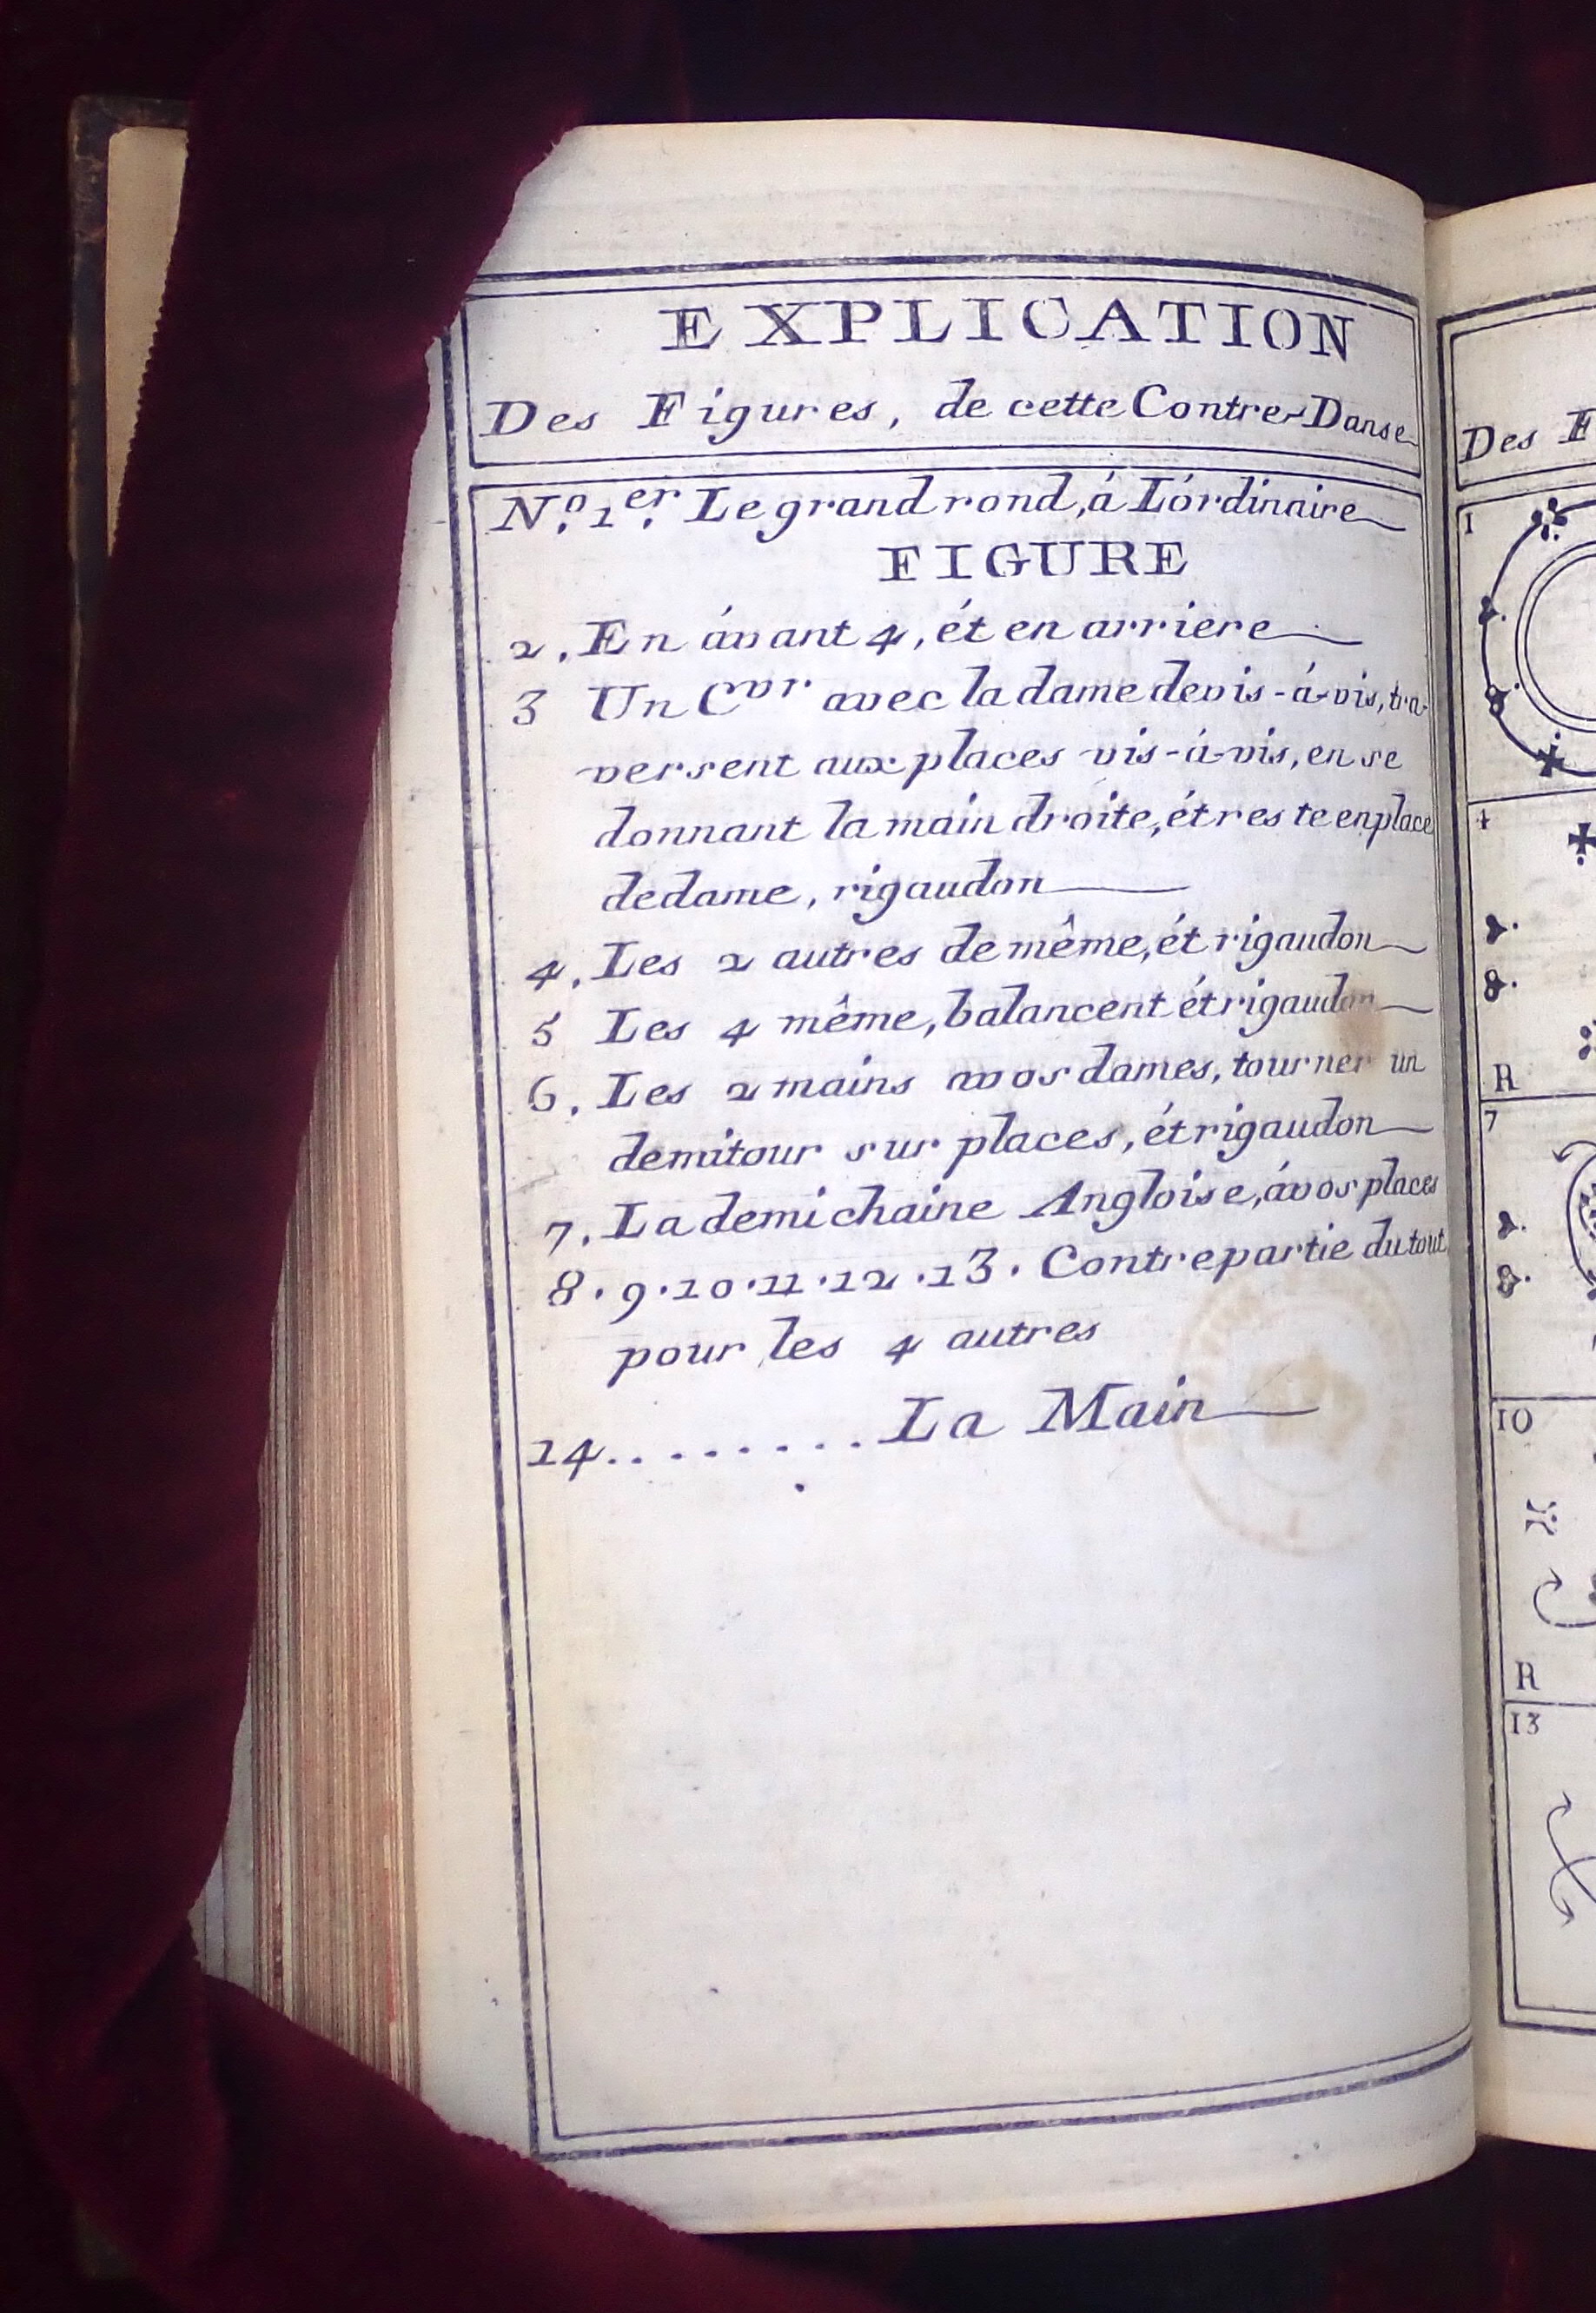 EXPLICATION
Des Figures, de cette Contre-Danse
N.º 1.er Le grand rond, á L'órdinaire
FIGURE
2. En ávant 4, ét en arriere
3 Un Cvr. avec la dame devis-á-vis, tra-
versent aux places vis-á-vis, en se
donnant la main droite, ét reste en place
de dame, rigaudon
4. Les 2 autres de même, ét rigaudon
5 Les 4 même, balancent ét rigaudon
6. Les 2 mains avos dames, tourner un
demitour sur places, ét rigaudon
7. La demi chaine Angloise, ávos places
8.9.10.11.12.13. Contre partie du tout
pour les 4 autres
14......... La Main
Des F
1
4
R
7
10
R
13